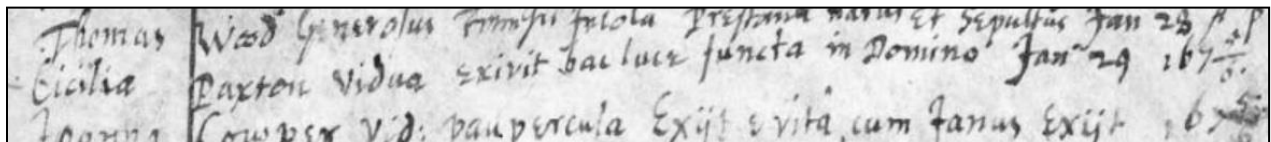 Thomas Wood Generosus Incola Prestana natus et Sepultus Jan 28
Cicilia Paxton vidua exivit hac luce functa in Domino Jan 29 167 5/6.
Joanna Cowper vid: paupercula Exijt e vitâ cum Janus Exijt 167